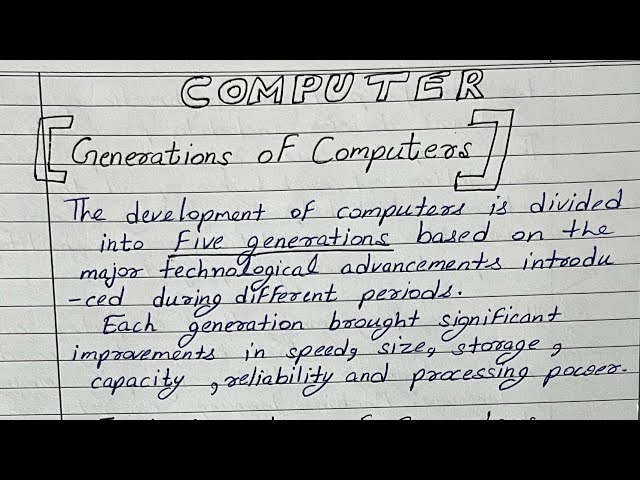 COMPUTER
Generations of Computers
The development of computers is divided
into Five generations based on the
major technological advancements introdu
-ced during different periods.
Each generation brought significant
improvements in speed, size, storage,
capacity, reliability and processing power.